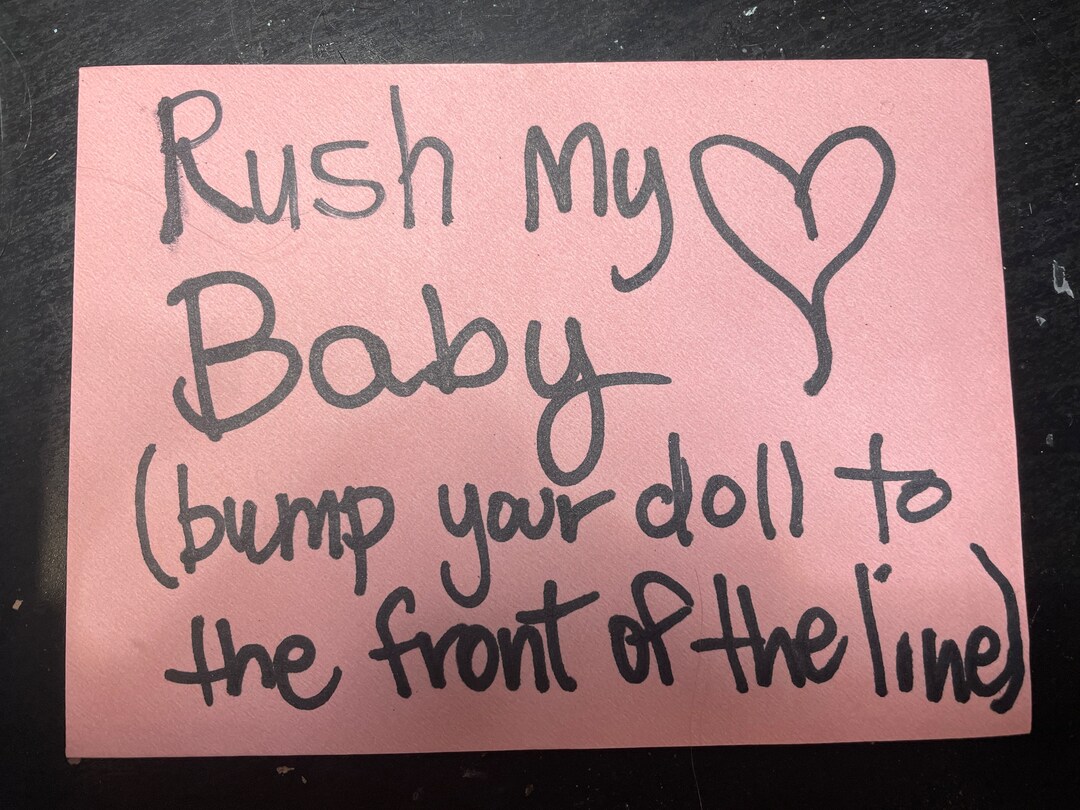 Rush My
Baby
(bump your doll to
the front of the line)